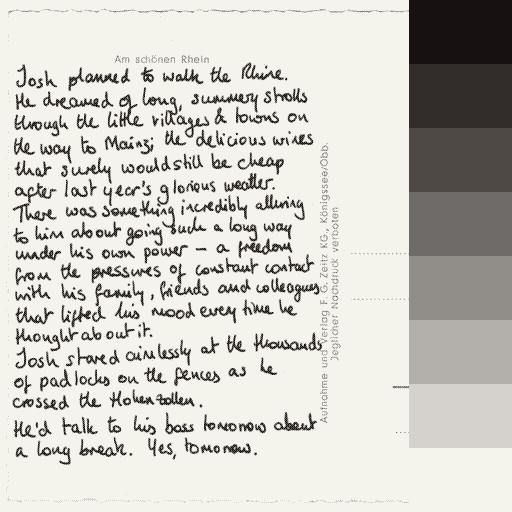 Am schönen Rhein
Josh planned to walk the Rhine.
He dreamed of long, summery strolls
through the little villages & towns on
the way to Mainz; the delicious wines
that surely would still be cheap
after last year's glorious weather.
There was something incredibly alluring
to him about going such a long way
under his own power – a freedom
from the pressures of constant contact
with his family, friends and colleagues
that lifted his mood every time he
thought about it.
Josh stared aimlessly at the thousands
of padlocks on the fences as he
crossed the Hohenzollern.
He'd talk to his boss tomorrow about
a long break. Yes, tomorrow.
Aufnahme und Verlag F. G. Zeitz KG., Königssee/Obb.
Jeglicher Nachdruck verboten